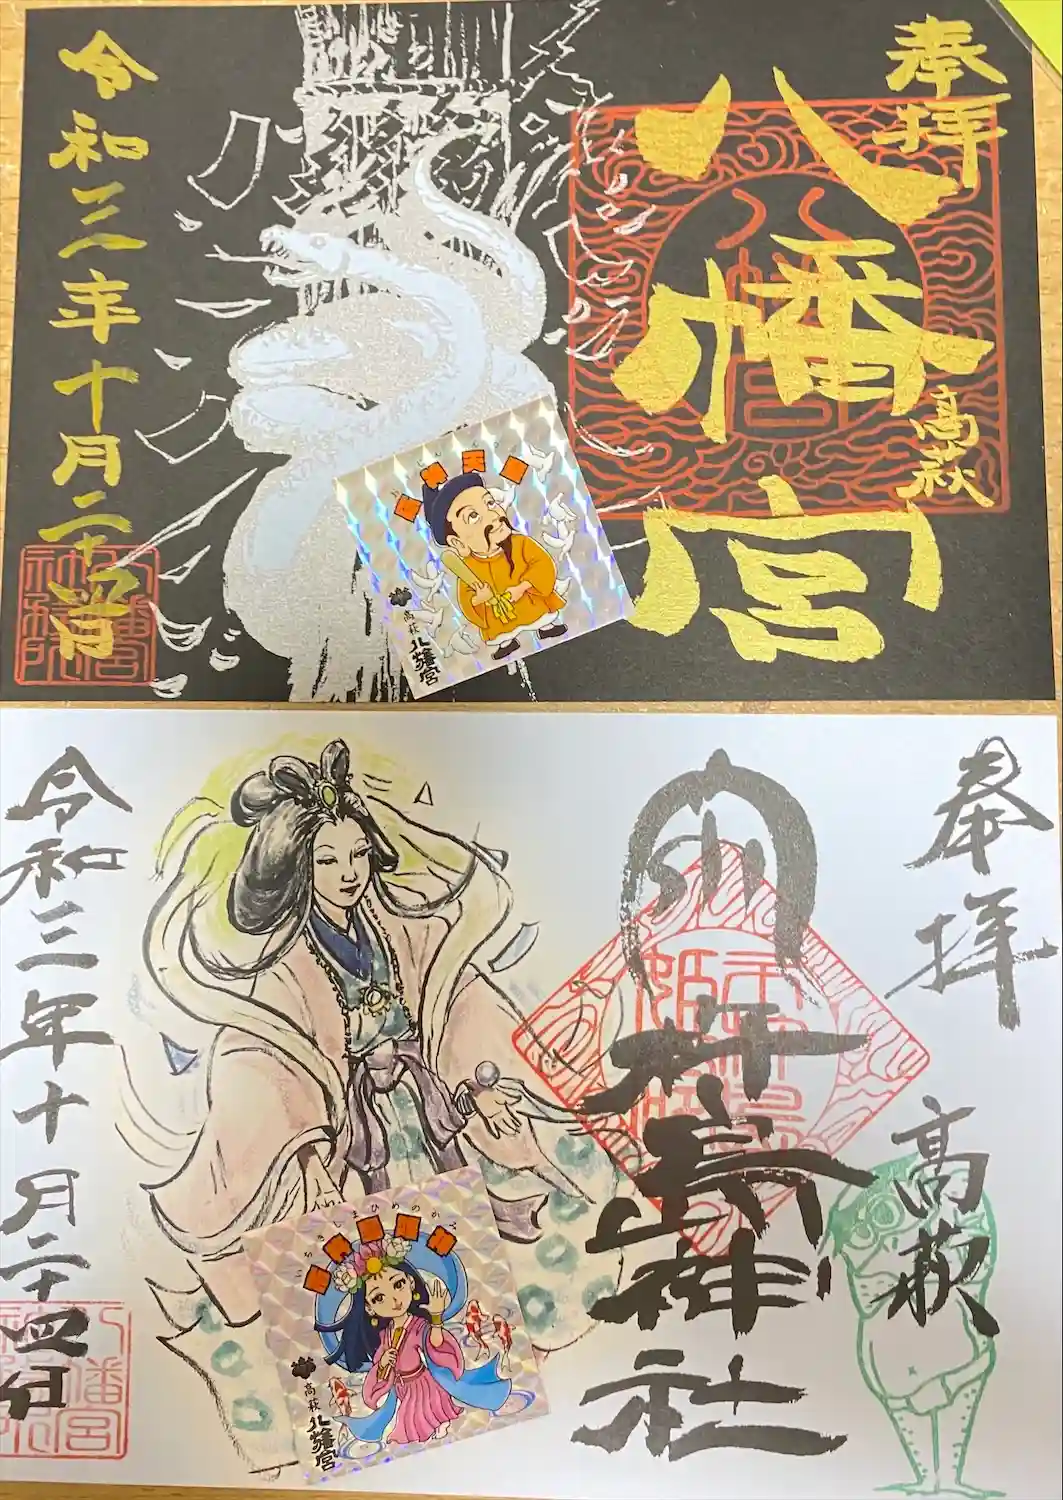 奉拝
高萩
八幡宮
令和三年十月二十四日
高萩
八幡宮
奉拝
高萩
杵島神社
令和三年十月二十四日
高萩
八幡宮